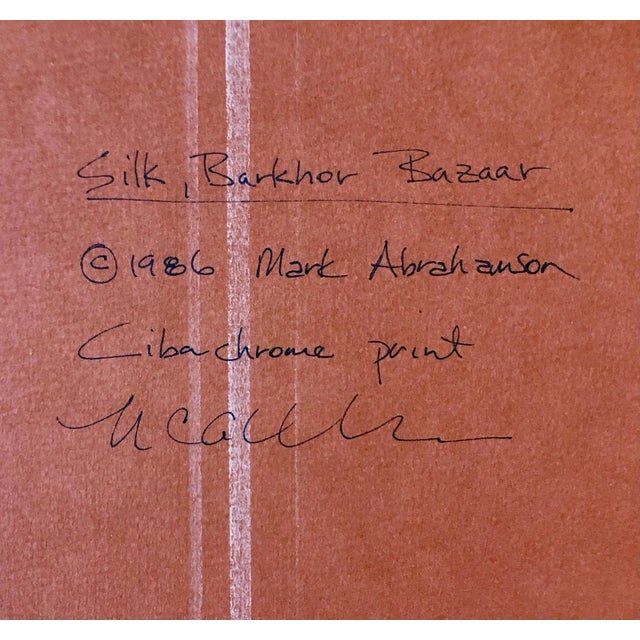 Silk, Barkhor Bazaar
©1986 Mark Abrahamson
Cibachrome print